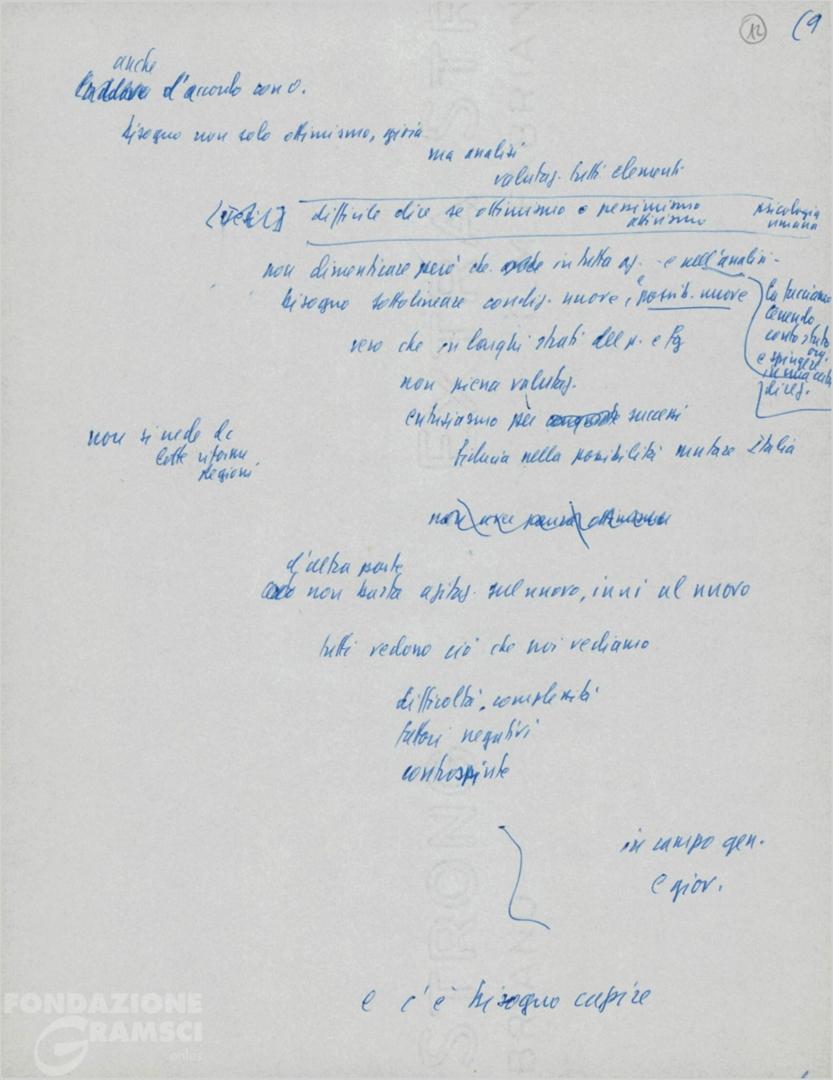 12 (9
anche
d'accordo con O.
bisogno non solo ottimismo, gioia
ma analisi
valutaz. tutti elementi
difficile dire se ottimismo o pessimismo
attivismo
psicologia
umana
non dimenticare però che in tutta az. e nell'analisi -
bisogno sottolineare condiz. nuove, e possib. nuove
la facciamo
tenendo
conto stato
org.
e spingere
in una certa
direz.
vero che in larghi strati del p. e fg
non piena valutaz.
entusiasmo per successi
fiducia nella possibilità mutare Italia
non si vede da
lotte riforme
Regioni
d'altra parte
non basta agitaz. sul nuovo, inni al nuovo
tutti vedono ciò che noi vediamo
difficoltà, complessità
fattori negativi
controspinte
in campo gen.
e giov.
e c'è bisogno capire
FONDAZIONE
GRAMSCI
onlus